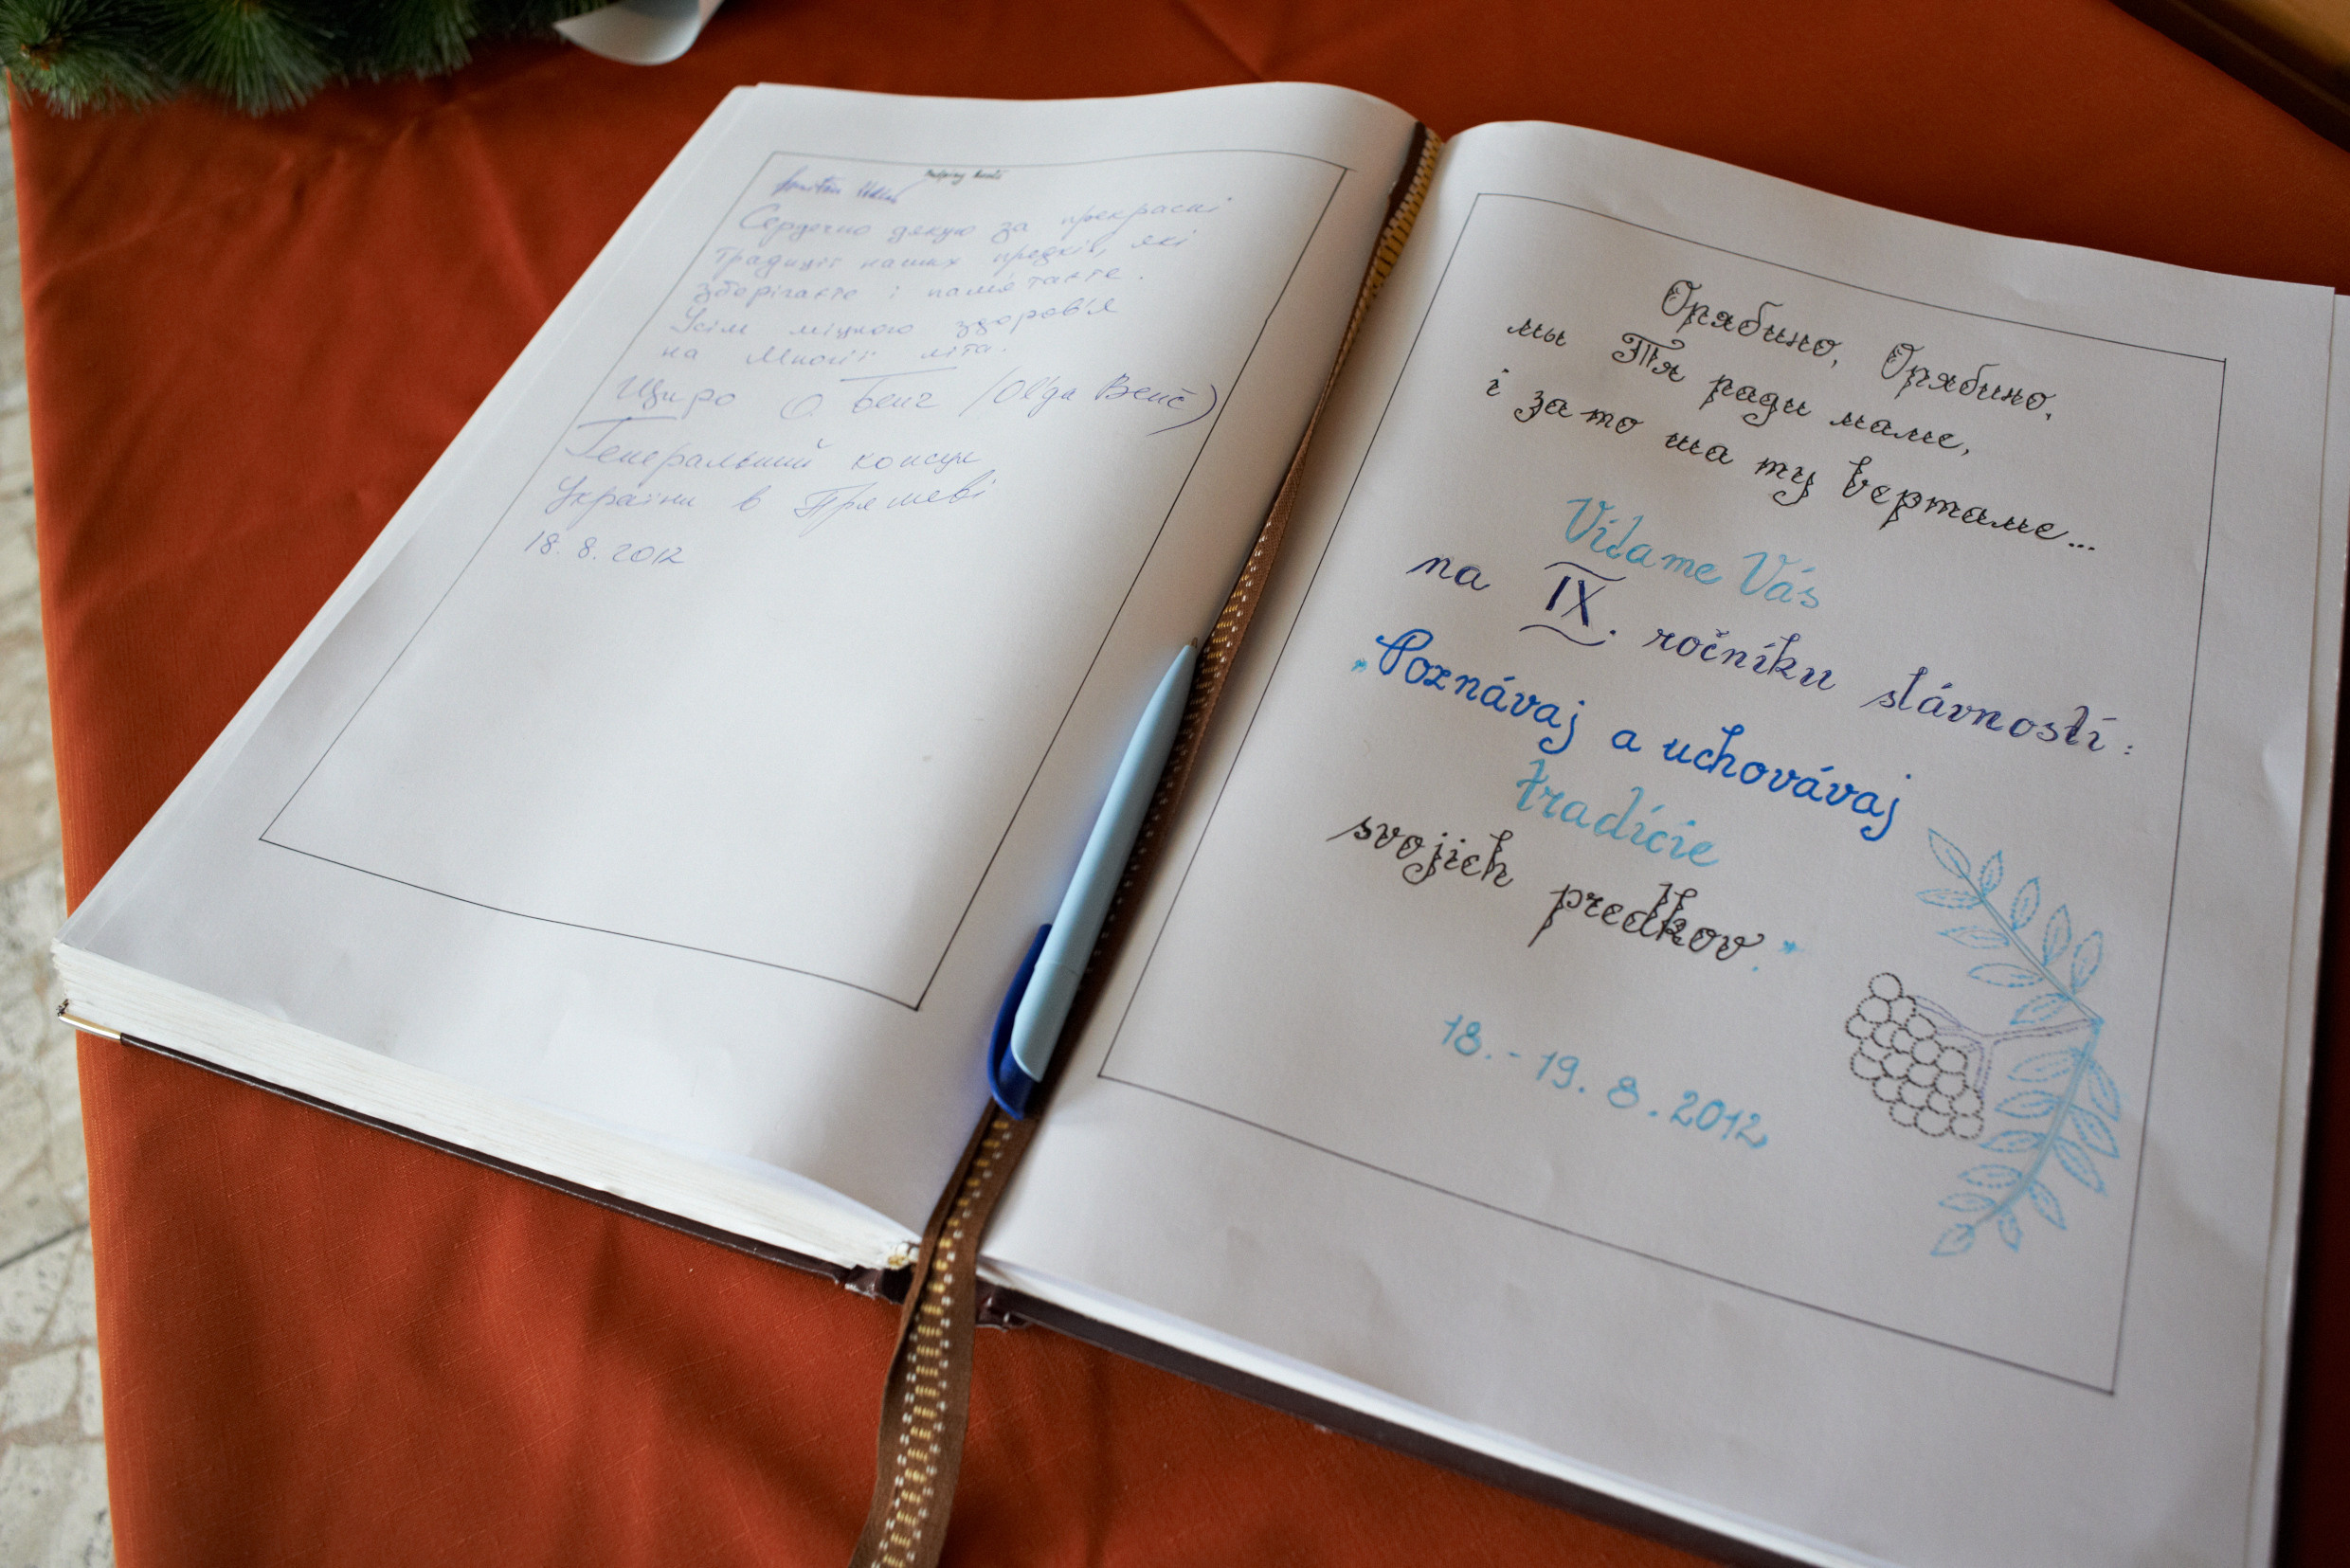 Podpisy hostí
Сердечно дякую за прекрасні
традиції наших предків, які
зберігаєте і пам'ятаєте.
Усім міцного здоров'я
на Многії літа.
Щиро О. Бенч (Ol'ga Benč)
Генеральний консул
України в Пряшеві
18. 8. 2012
Орябино, Орябино,
мы Тя ради маме,
і за то ша ту вертаме...
Vítame Vás
na IX. ročníku slávností:
"Poznávaj a uchovávaj
tradície
svojich predkov."
18.-19. 8. 2012